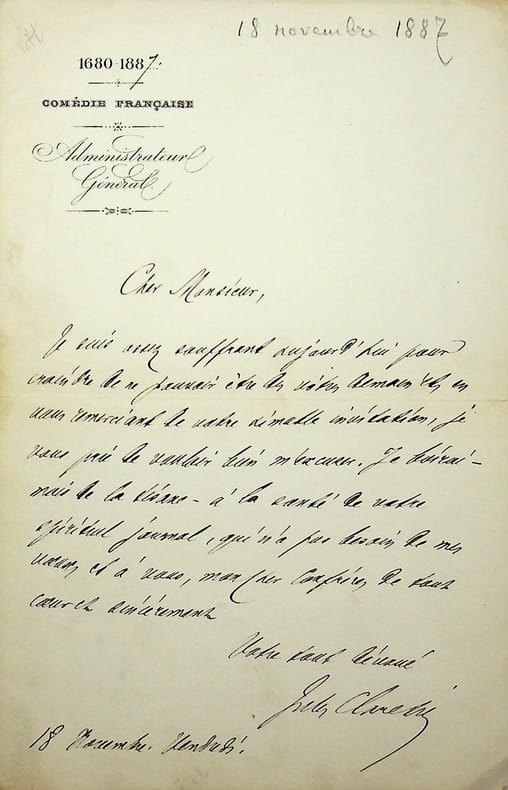 18 novembre 1887
1680-1887.
COMÉDIE FRANÇAISE
Administrateur
Général
Cher Monsieur,
Je suis assez souffrant aujourd'hui pour
craindre de ne pouvoir être des vôtres demain. Et en
vous remerciant de votre aimable invitation, je
vous prie de vouloir bien m'excuser. Je boirai –
mais de la tisane – à la santé de votre
spirituel journal, qui n'a pas besoin de mes
vœux, et à vous, mon cher Confrère, de tout
cœur et sincèrement
Votre tout dévoué
Jules Claretie
18 Novembre. Vendredi.